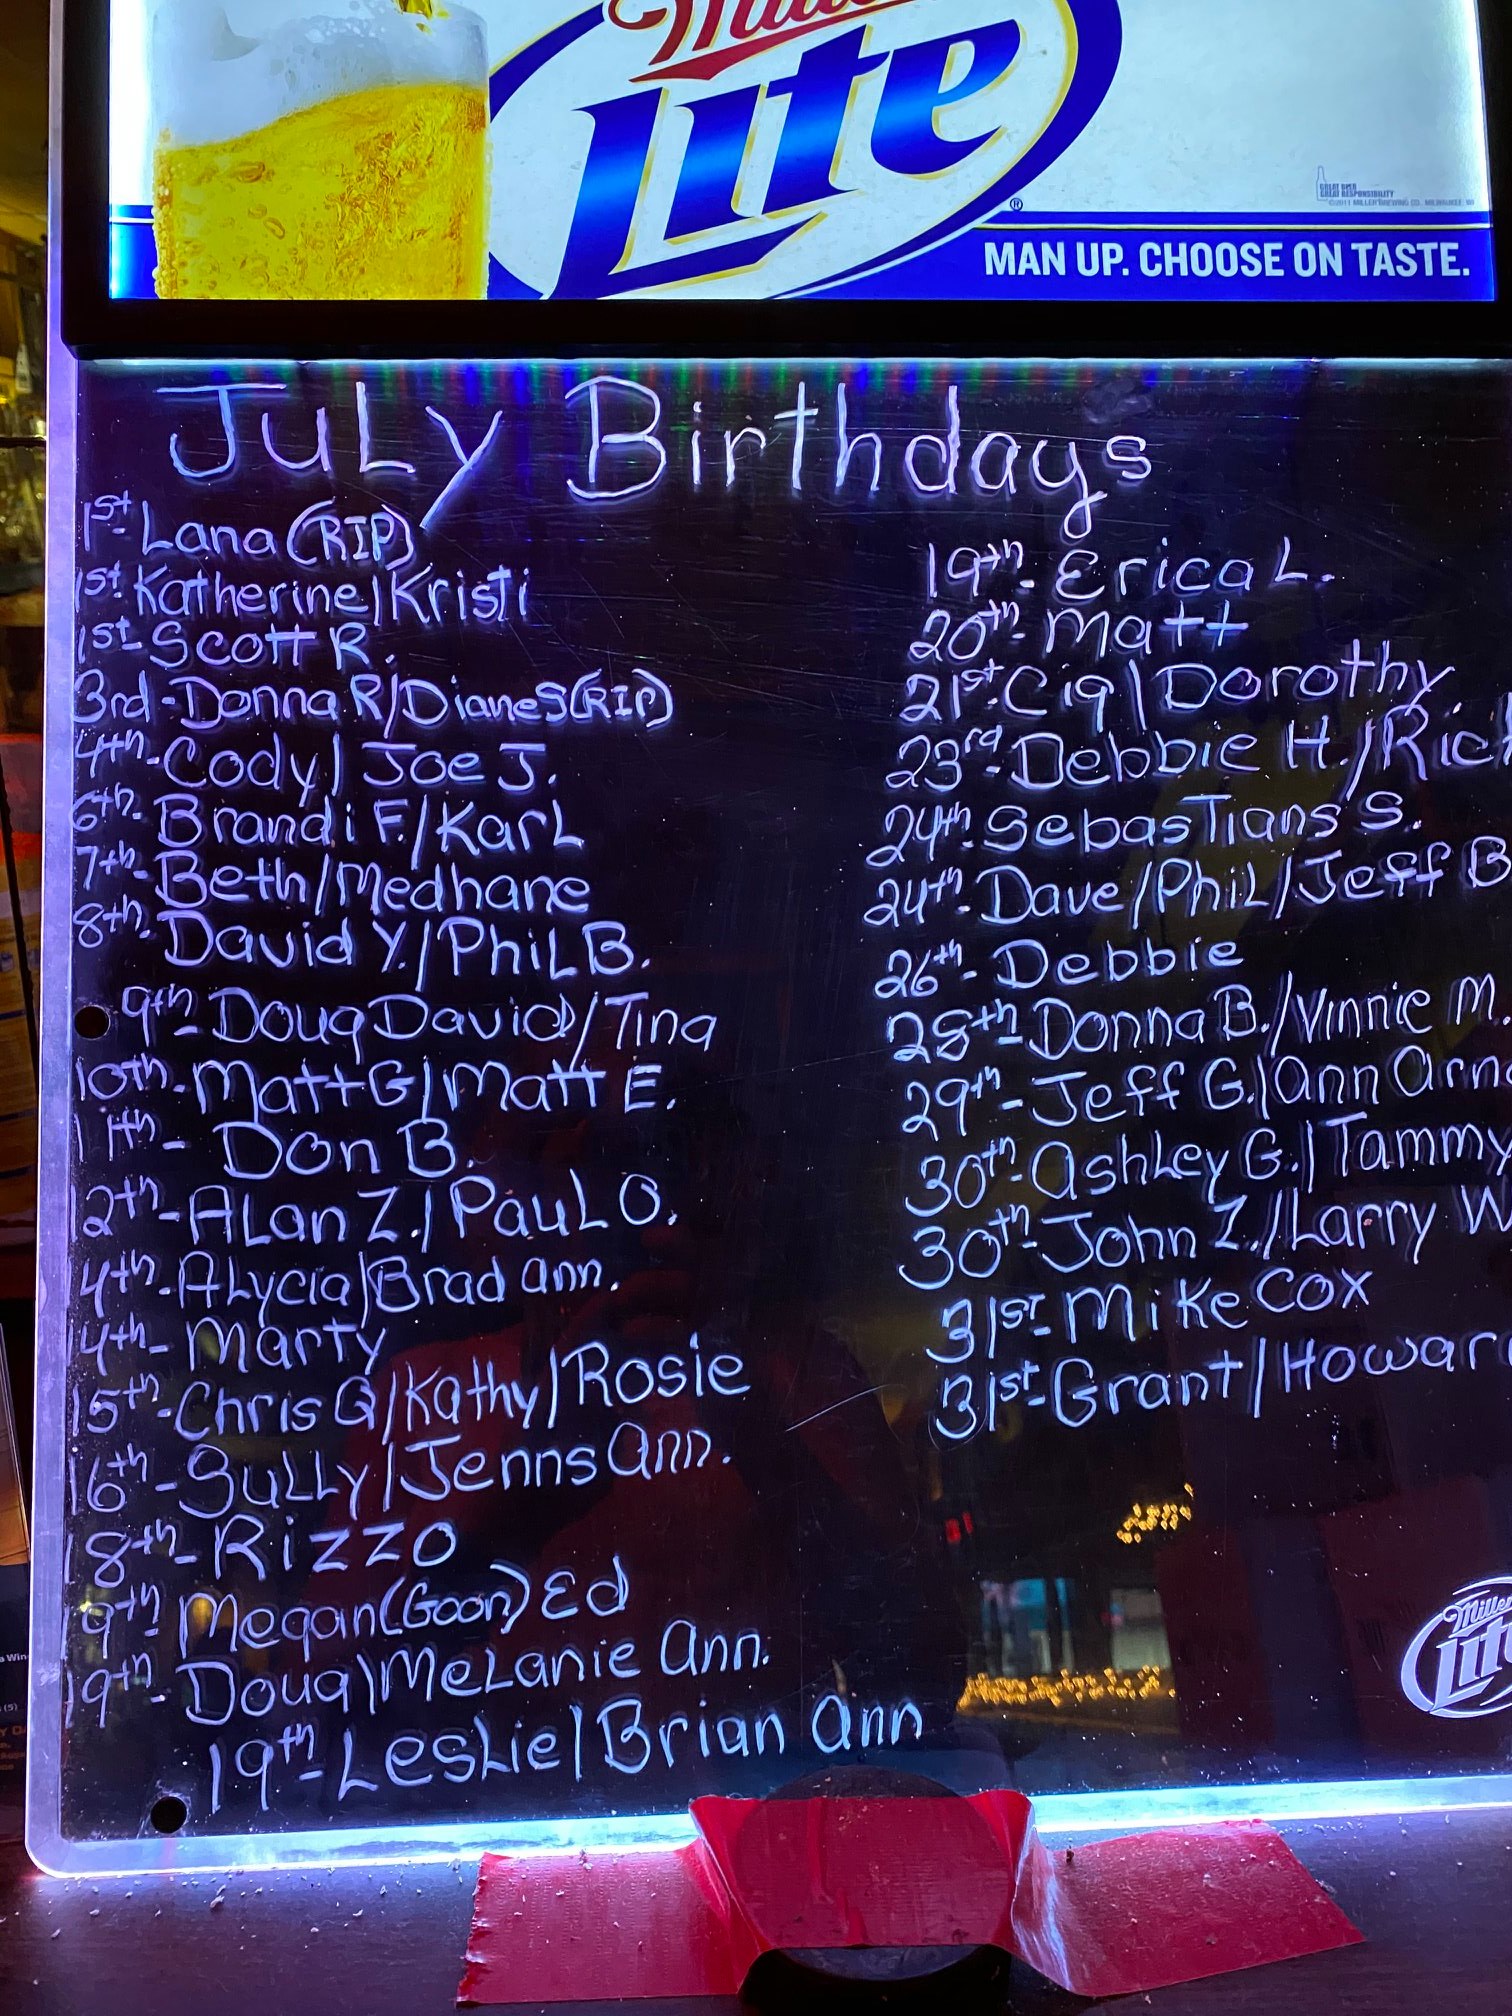 Miller
Lite
®
GREAT BEER
GREAT RESPONSIBILITY
©2011 MILLER BREWING CO., MILWAUKEE, WI
MAN UP. CHOOSE ON TASTE.
JuLy Birthdays
1st- Lana (RIP)
1st- Katherine/Kristi
1st- Scott R.
3rd-Donna R/Diane S(RIP)
4th-Cody/Joe J.
6th- Brandi F./KarL
7th-Beth/Medhane
8th- David Y./PhiL B.
9th-Doug David/Tina
10th-Matt G/Matt E.
11th- Don B.
2th-ALan Z./PauL O.
4th-ALycia/Brad ann.
14th- Marty
15th-Chris Q/Kathy/Rosie
16th-SuLLy/Jenns ann.
18th-Rizzo
19th Megan(Goon) Ed
19th- Doug/MeLanie ann.
19th-LesLie/Brian ann
19th- Erica L.
20th- Matt
21st-Cig/Dorothy
23rd-Debbie H./Rich
24th-SebasTians S.
24th-Dave/PhiL/Jeff B
26th-Debbie
28th-Donna B./Vinnie M.
29th-Jeff G./ann arn
30th-ashLey G./Tammy
30th-John Z./Larry W
31st-Mike Cox
31st-Grant/Howar
Miller
Lite